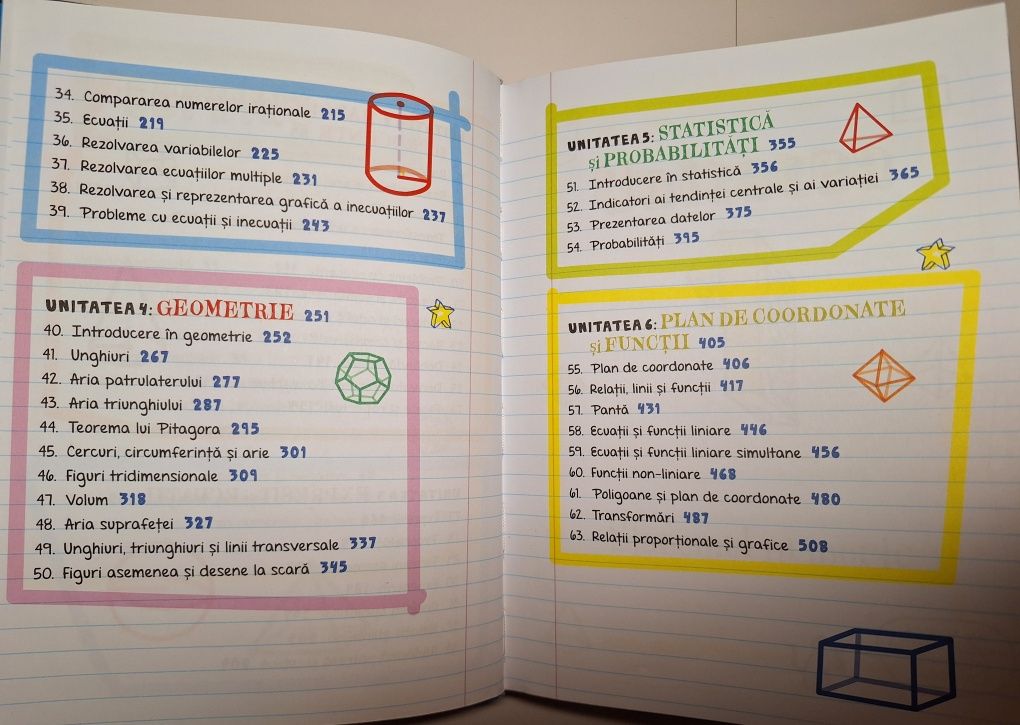 34. Compararea numerelor iraționale 215
35. Ecuații 219
36. Rezolvarea variabilelor 225
37. Rezolvarea ecuațiilor multiple 231
38. Rezolvarea și reprezentarea grafică a inecuațiilor 237
39. Probleme cu ecuații și inecuații 243
UNITATEA 4: GEOMETRIE 251
40. Introducere în geometrie 252
41. Unghiuri 267
42. Aria patrulaterului 277
43. Aria triunghiului 287
44. Teorema lui Pitagora 295
45. Cercuri, circumferință și arie 301
46. Figuri tridimensionale 309
47. Volum 318
48. Aria suprafeței 327
49. Unghiuri, triunghiuri și linii transversale 337
50. Figuri asemenea și desene la scară 345
UNITATEA 5: STATISTICĂ
și PROBABILITĂȚI 355
51. Introducere în statistică 356
52. Indicatori ai tendinței centrale și ai variației 365
53. Prezentarea datelor 375
54. Probabilități 395
UNITATEA 6: PLAN DE COORDONATE
și FUNCȚII 405
55. Plan de coordonate 406
56. Relații, linii și funcții 417
57. Pantă 431
58. Ecuații și funcții liniare 446
59. Ecuații și funcții liniare simultane 456
60. Funcții non-liniare 468
61. Poligoane și plan de coordonate 480
62. Transformări 487
63. Relații proporționale și grafice 508